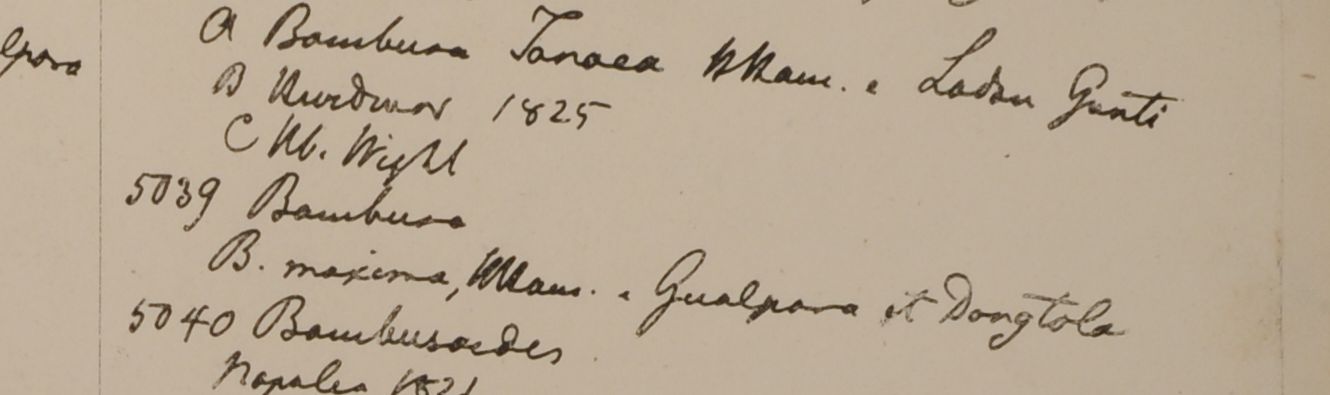 lpora
A Bambusa Tanaea HHam. e Ladou Gunti
B Hurdwar 1825
C Hb. Wight
5039 Bambusa
B. maxima, HHam. e Gualpara et Dongtola
5040 Bambusoides
Napalea 1821